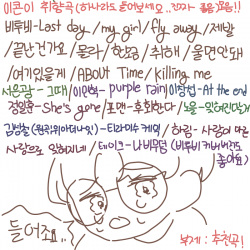 이콘이 취향곡 (하나라도 들어보세요..진짜 좋은 노래!!)
비투비-Last day / my girl / fly away / 제발
/ 끝난건가요 / 몰라 / 한걸 / 취해 / 울면 안돼
/ 여기있을게 / About Time / killing me
서은광-그때 / 이민혁-purple rain / 이창섭-At the end
정일훈-She's gone / 포맨-후회한다 /
-티라미수케익 / 하림-사랑이 다른
사랑으로 잊혀지네 / 테이크-나비무덤 (비투비 커버버전도
좋아요)
들어줘..
부제: 추천곡!